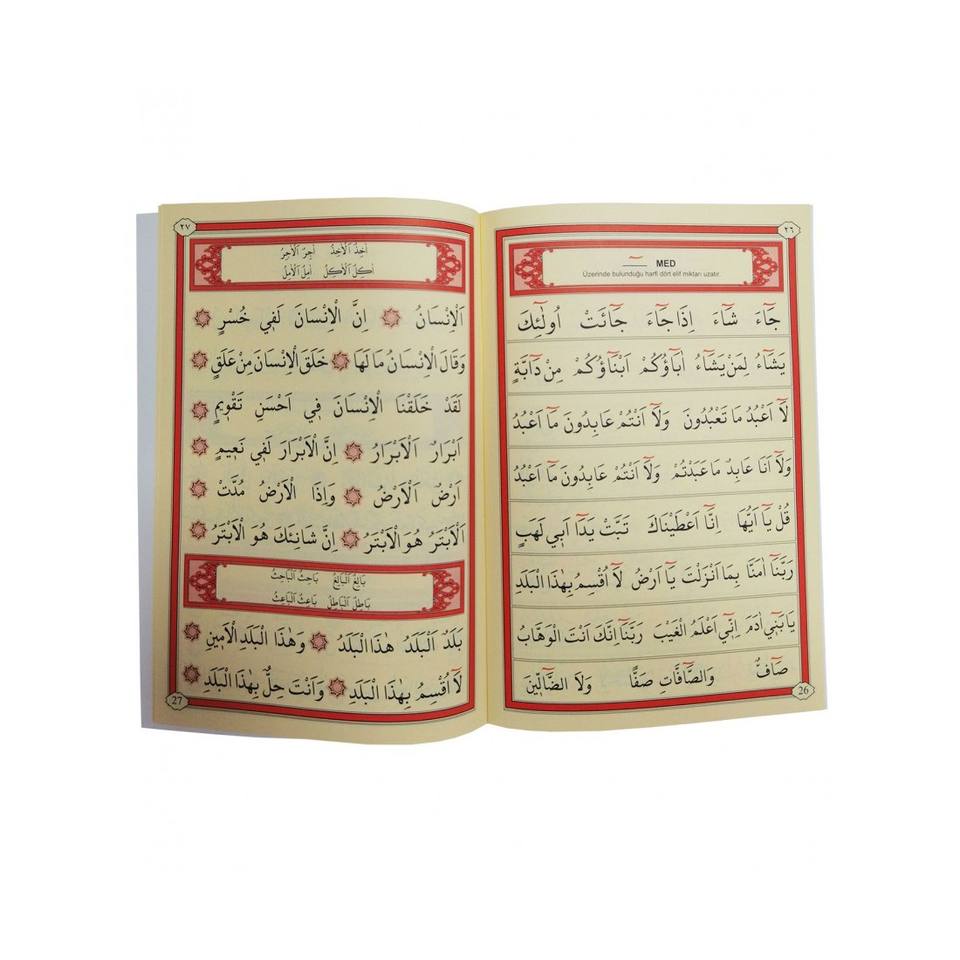 ٢٦
MED
Üzerinde bulunduğu harfi dört elif miktarı uzatır.
جَٓاءَ شَٓاءَ اِذَا جَٓاءَ جَٓائَتْ اُولٰٓئِكَ
يَشَٓاءُ لِمَنْ يَشَٓاءُ اٰبَٓاؤُكُمْ اَبْنَٓاؤُكُمْ مِنْ دَٓابَّةٍ
لَٓا اَعْبُدُ مَا تَعْبُدُونَ وَلَٓا اَنْتُمْ عَابِدُونَ مَٓا اَعْبُدُ
وَلَٓا اَنَا عَابِدٌ مَا عَبَدْتُمْ وَلَٓا اَنْتُمْ عَابِدُونَ مَٓا اَعْبُدُ
قُلْ يَٓا اَيُّهَا اِنَّٓا اَعْطَيْنَاكَ تَبَّتْ يَدَٓا اَبٖي لَهَبٍ
رَبَّنَٓا اٰمَنَّا بِمَٓا اَنْزَلْتَ يَٓا اَرْضُ لَٓا اُقْسِمُ بِهٰذَا الْبَلَدِ
يَا بَنٖٓي اٰدَمَ اِنّٖٓي اَعْلَمُ الْغَيْبَ رَبَّنَٓا اِنَّكَ اَنْتَ الْوَهَّابُ
صَٓافٌّ وَالصَّٓافَّاتِ صَفًّا وَلَا الضَّٓالّٖينَ
26
٢٧
اَخِذُ اَلْاٰخِذُ اٰجِرُ اَلْاٰجِرُ
اٰكِلُ اَلْاٰكِلُ اٰمِلُ اَلْاٰمِلُ
اَلْاِنْسَانُ اِنَّ الْاِنْسَانَ لَفٖي خُسْرٍ
وَقَالَ الْاِنْسَانُ مَا لَهَا خَلَقَ الْاِنْسَانَ مِنْ عَلَقٍ
لَقَدْ خَلَقْنَا الْاِنْسَانَ فٖٓي اَحْسَنِ تَقْوٖيمٍ
اَبْرَارُ اَلْاَبْرَارُ اِنَّ الْاَبْرَارَ لَفٖي نَعٖيمٍ
اَرْضُ اَلْاَرْضُ وَاِذَا الْاَرْضُ مُدَّتْ
اَلْاَبْتَرُ هُوَ الْاَبْتَرُ اِنَّ شَانِئَكَ هُوَ الْاَبْتَرُ
بَالِغُ اَلْبَالِغُ بَاحِثُ اَلْبَاحِثُ
بَاطِلُ اَلْبَاطِلُ بَاعِثُ اَلْبَاعِثُ
بَلَدُ اَلْبَلَدُ هٰذَا الْبَلَدُ وَهٰذَا الْبَلَدِ الْاَمٖينِ
لَٓا اُقْسِمُ بِهٰذَا الْبَلَدِ وَاَنْتَ حِلٌّ بِهٰذَا الْبَلَدِ
27